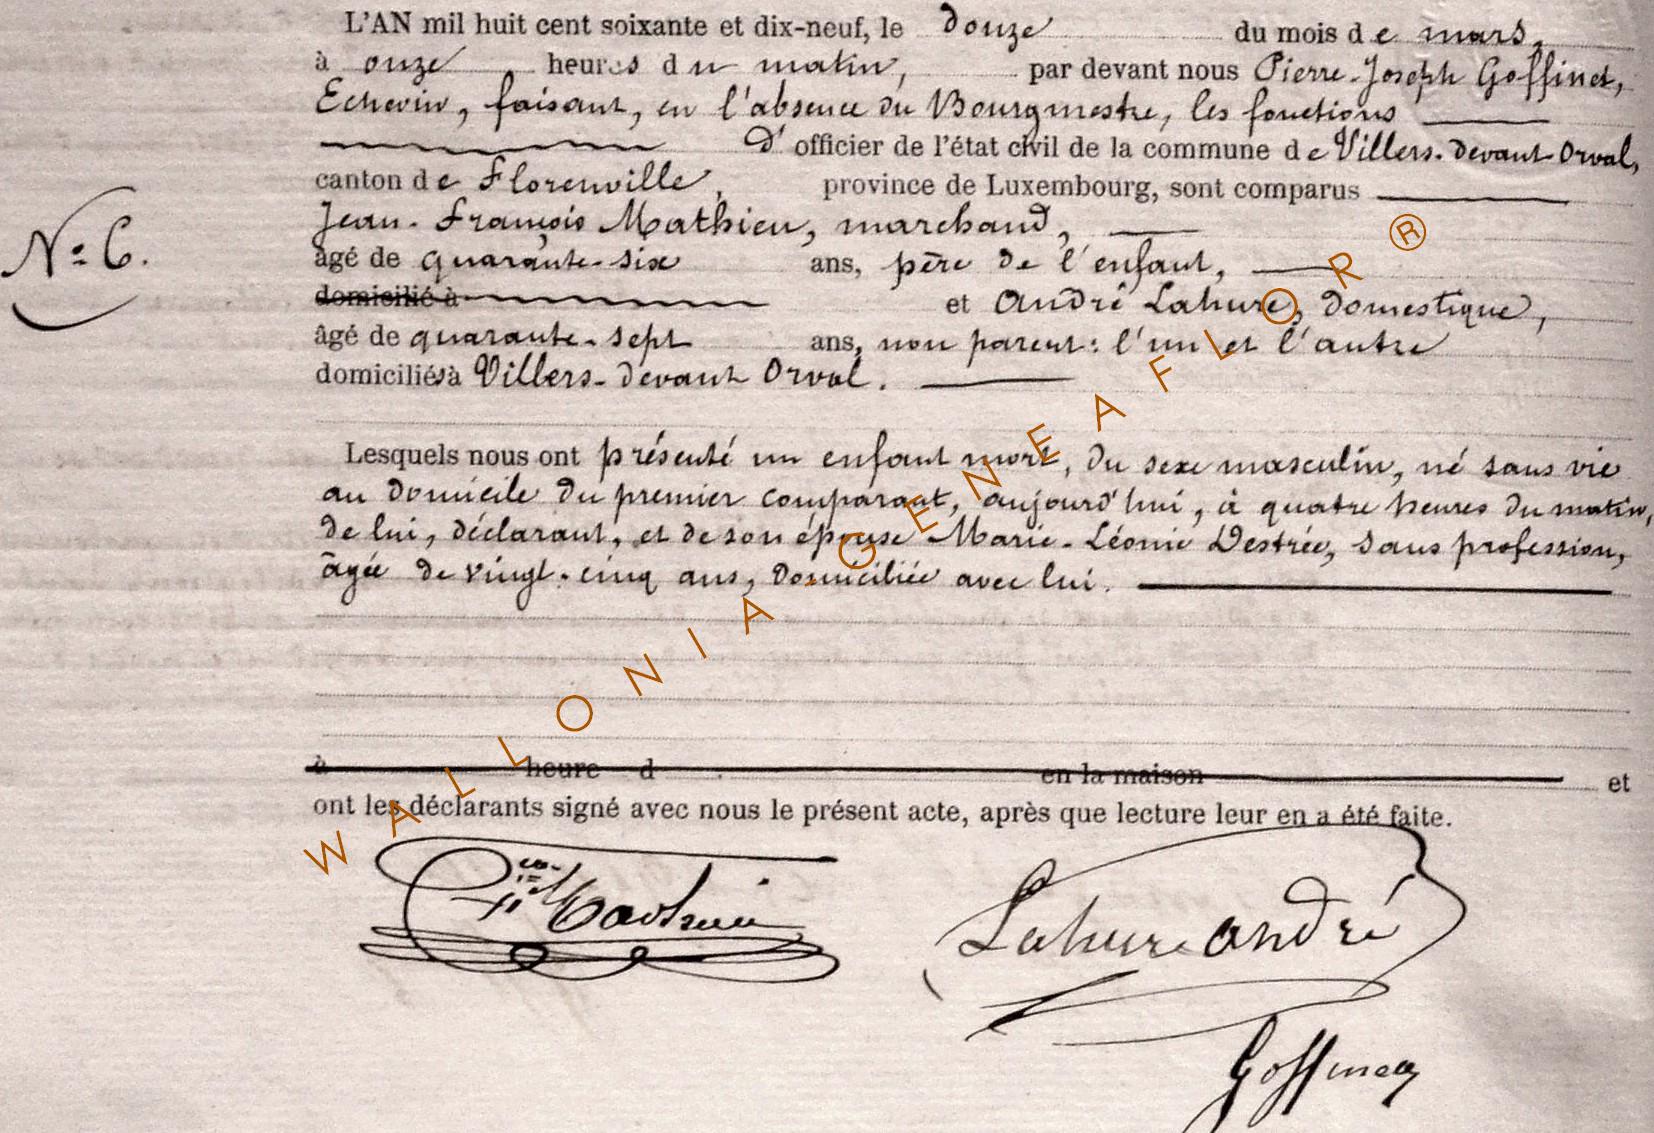 L'AN mil huit cent soixante et dix-neuf, le douze du mois de mars,
à onze heures du matin, par devant nous Pierre-Joseph Goffinet,
Echevin, faisant, en l'absence du Bourgmestre, les fonctions
d'officier de l'état civil de la commune de Villers-devant-Orval,
canton de Florenville, province de Luxembourg, sont comparus
Jean-François Mathieu, marchand,
N° 6.
âgé de quarante-six ans, père de l'enfant,
domicilié à et André Lahure, domestique,
âgé de quarante-sept ans, non parent: l'un et l'autre
domiciliés à Villers-devant Orval.
Lesquels nous ont présenté un enfant mort, du sexe masculin, né sans vie
au domicile du premier comparant, aujourd'hui, à quatre heures du matin,
de lui, déclarant, et de son épouse Marie-Léonie Destrée, sans profession,
âgée de vingt-cinq ans, domiciliée avec lui.
à heure d en la maison et
ont les déclarants signé avec nous le présent acte, après que lecture leur en a été faite.
Lahure andré
Goffinet
WALLONIA-GENEAFLOR®